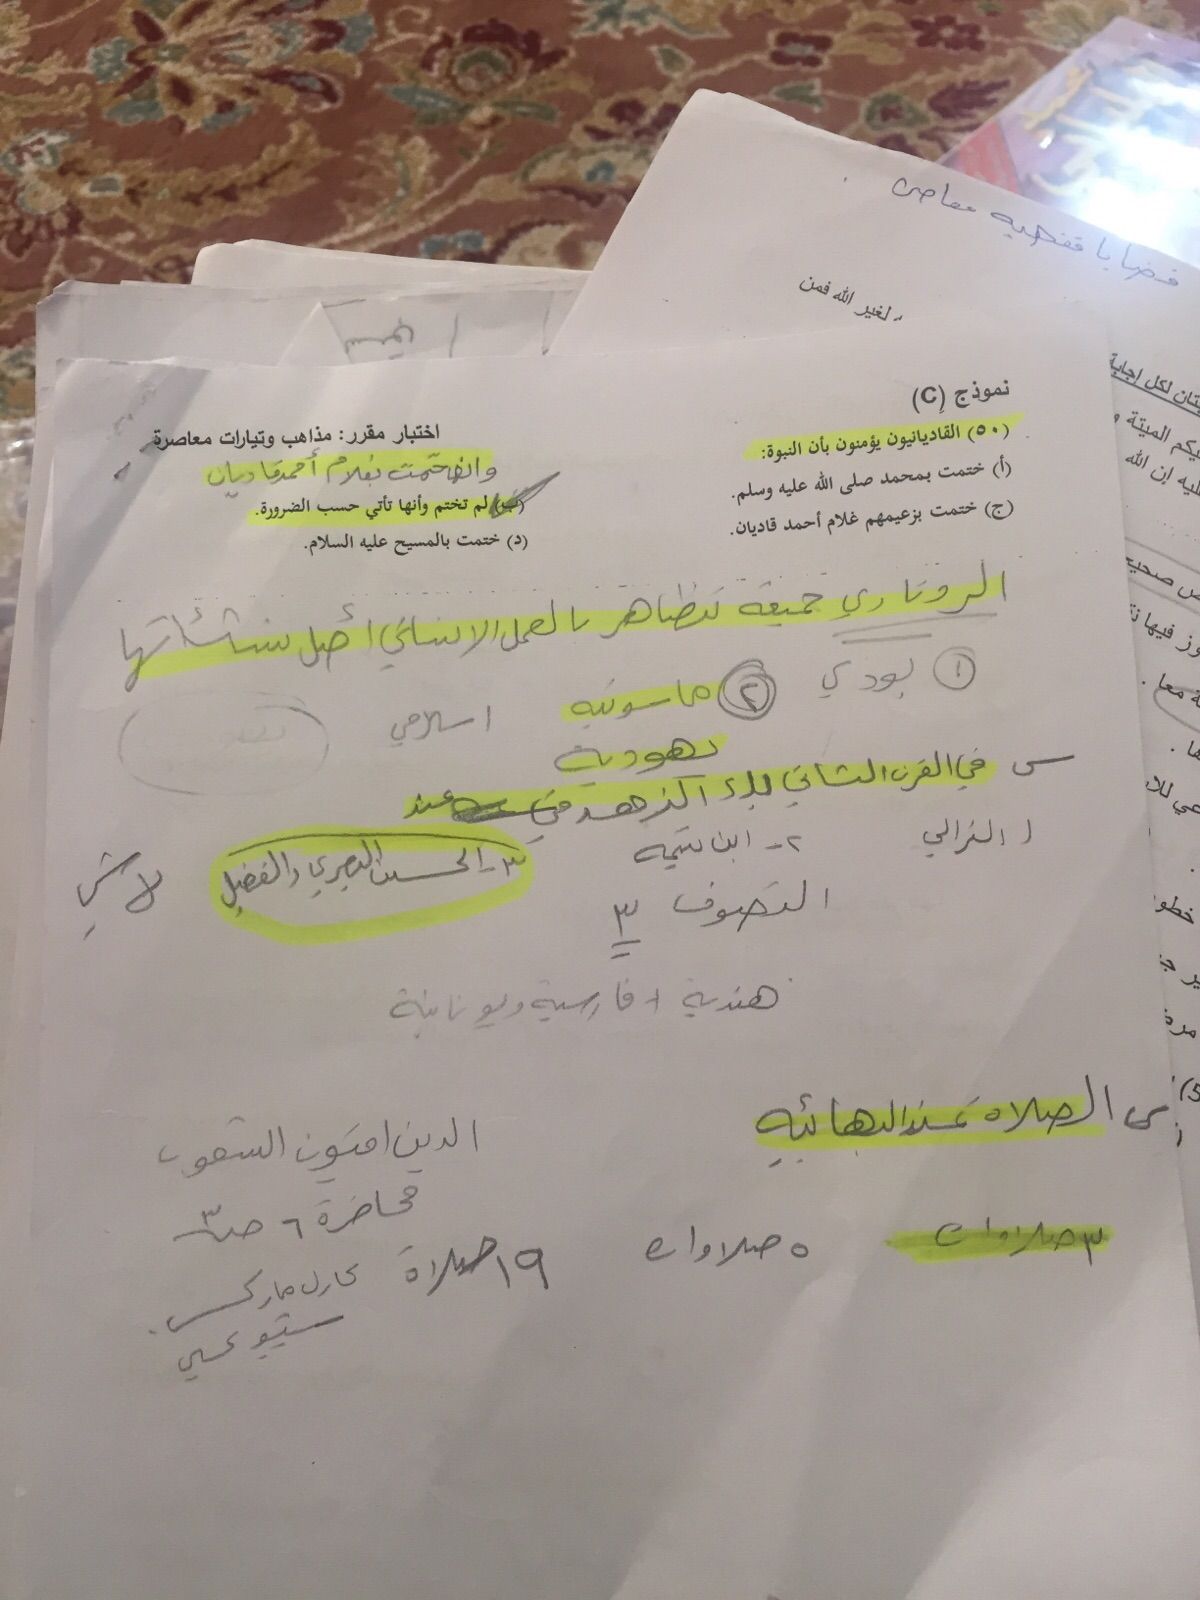 قضايا فقهية معاصر
لغير الله فمن
نموذج (C)
اختبار مقرر: مذاهب وتيارات معاصرة
(٥٠) القاديانيون يؤمنون بأن النبوة:
وانها ختمت بغلام أحمد قاديان
(أ) ختمت بمحمد صلى الله عليه وسلم.
(ب) لم تختم وأنها تأتي حسب الضرورة.
(ج) ختمت بزعيمهم غلام أحمد قاديان.
(د) ختمت بالمسيح عليه السلام.
الروتاري جمعية تتظاهر بالعمل الانساني أصل نشأتها
١ بوذي ٢ ماسونية اسلامي
يهودية
س في القرن الثاني بدء الزهد عند
١ الغزالي ٢- ابن تيمية ٣- الحسن البصري والفضيل لا شي
التصوف ٣
هندية + فارسية ويونانية
س الصلاة عند البهائية
٣ صلاوات ٥ صلاوات ١٩ صلاة
الدين افيون الشعوب
محاضرة ٦ ص ٣
كارل ماركس
شيوعي